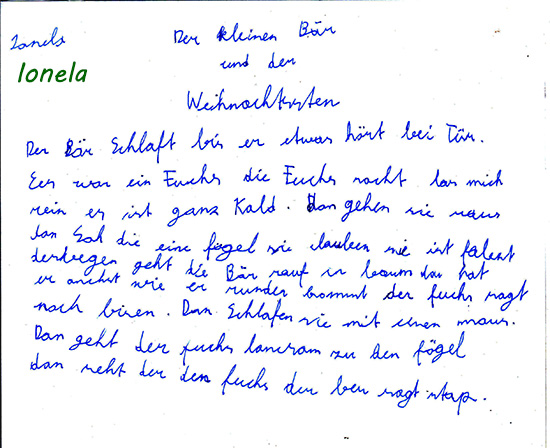 Ionela
Der kleinen Bär
Ionela
und der
Weihnachtsten
Der Bär Schlaft bis er etwas hört bei Tür.
Ees war ein Fuchs die Fuchs sacht las mich
rein es ist ganz Kald. Dan gehen sie raus
dan Sah die eine fogel sie clauben sie ist falent
derwegen geht die Bär rauf in baum dan hat
er wie er runder kommt der fuchs sagt
nach binen. Dan Schlafen sie mit einen maus.
Dan geht der fuchs lancsam zu den fögel
dan seht der den fuchs der ber sagt stap.